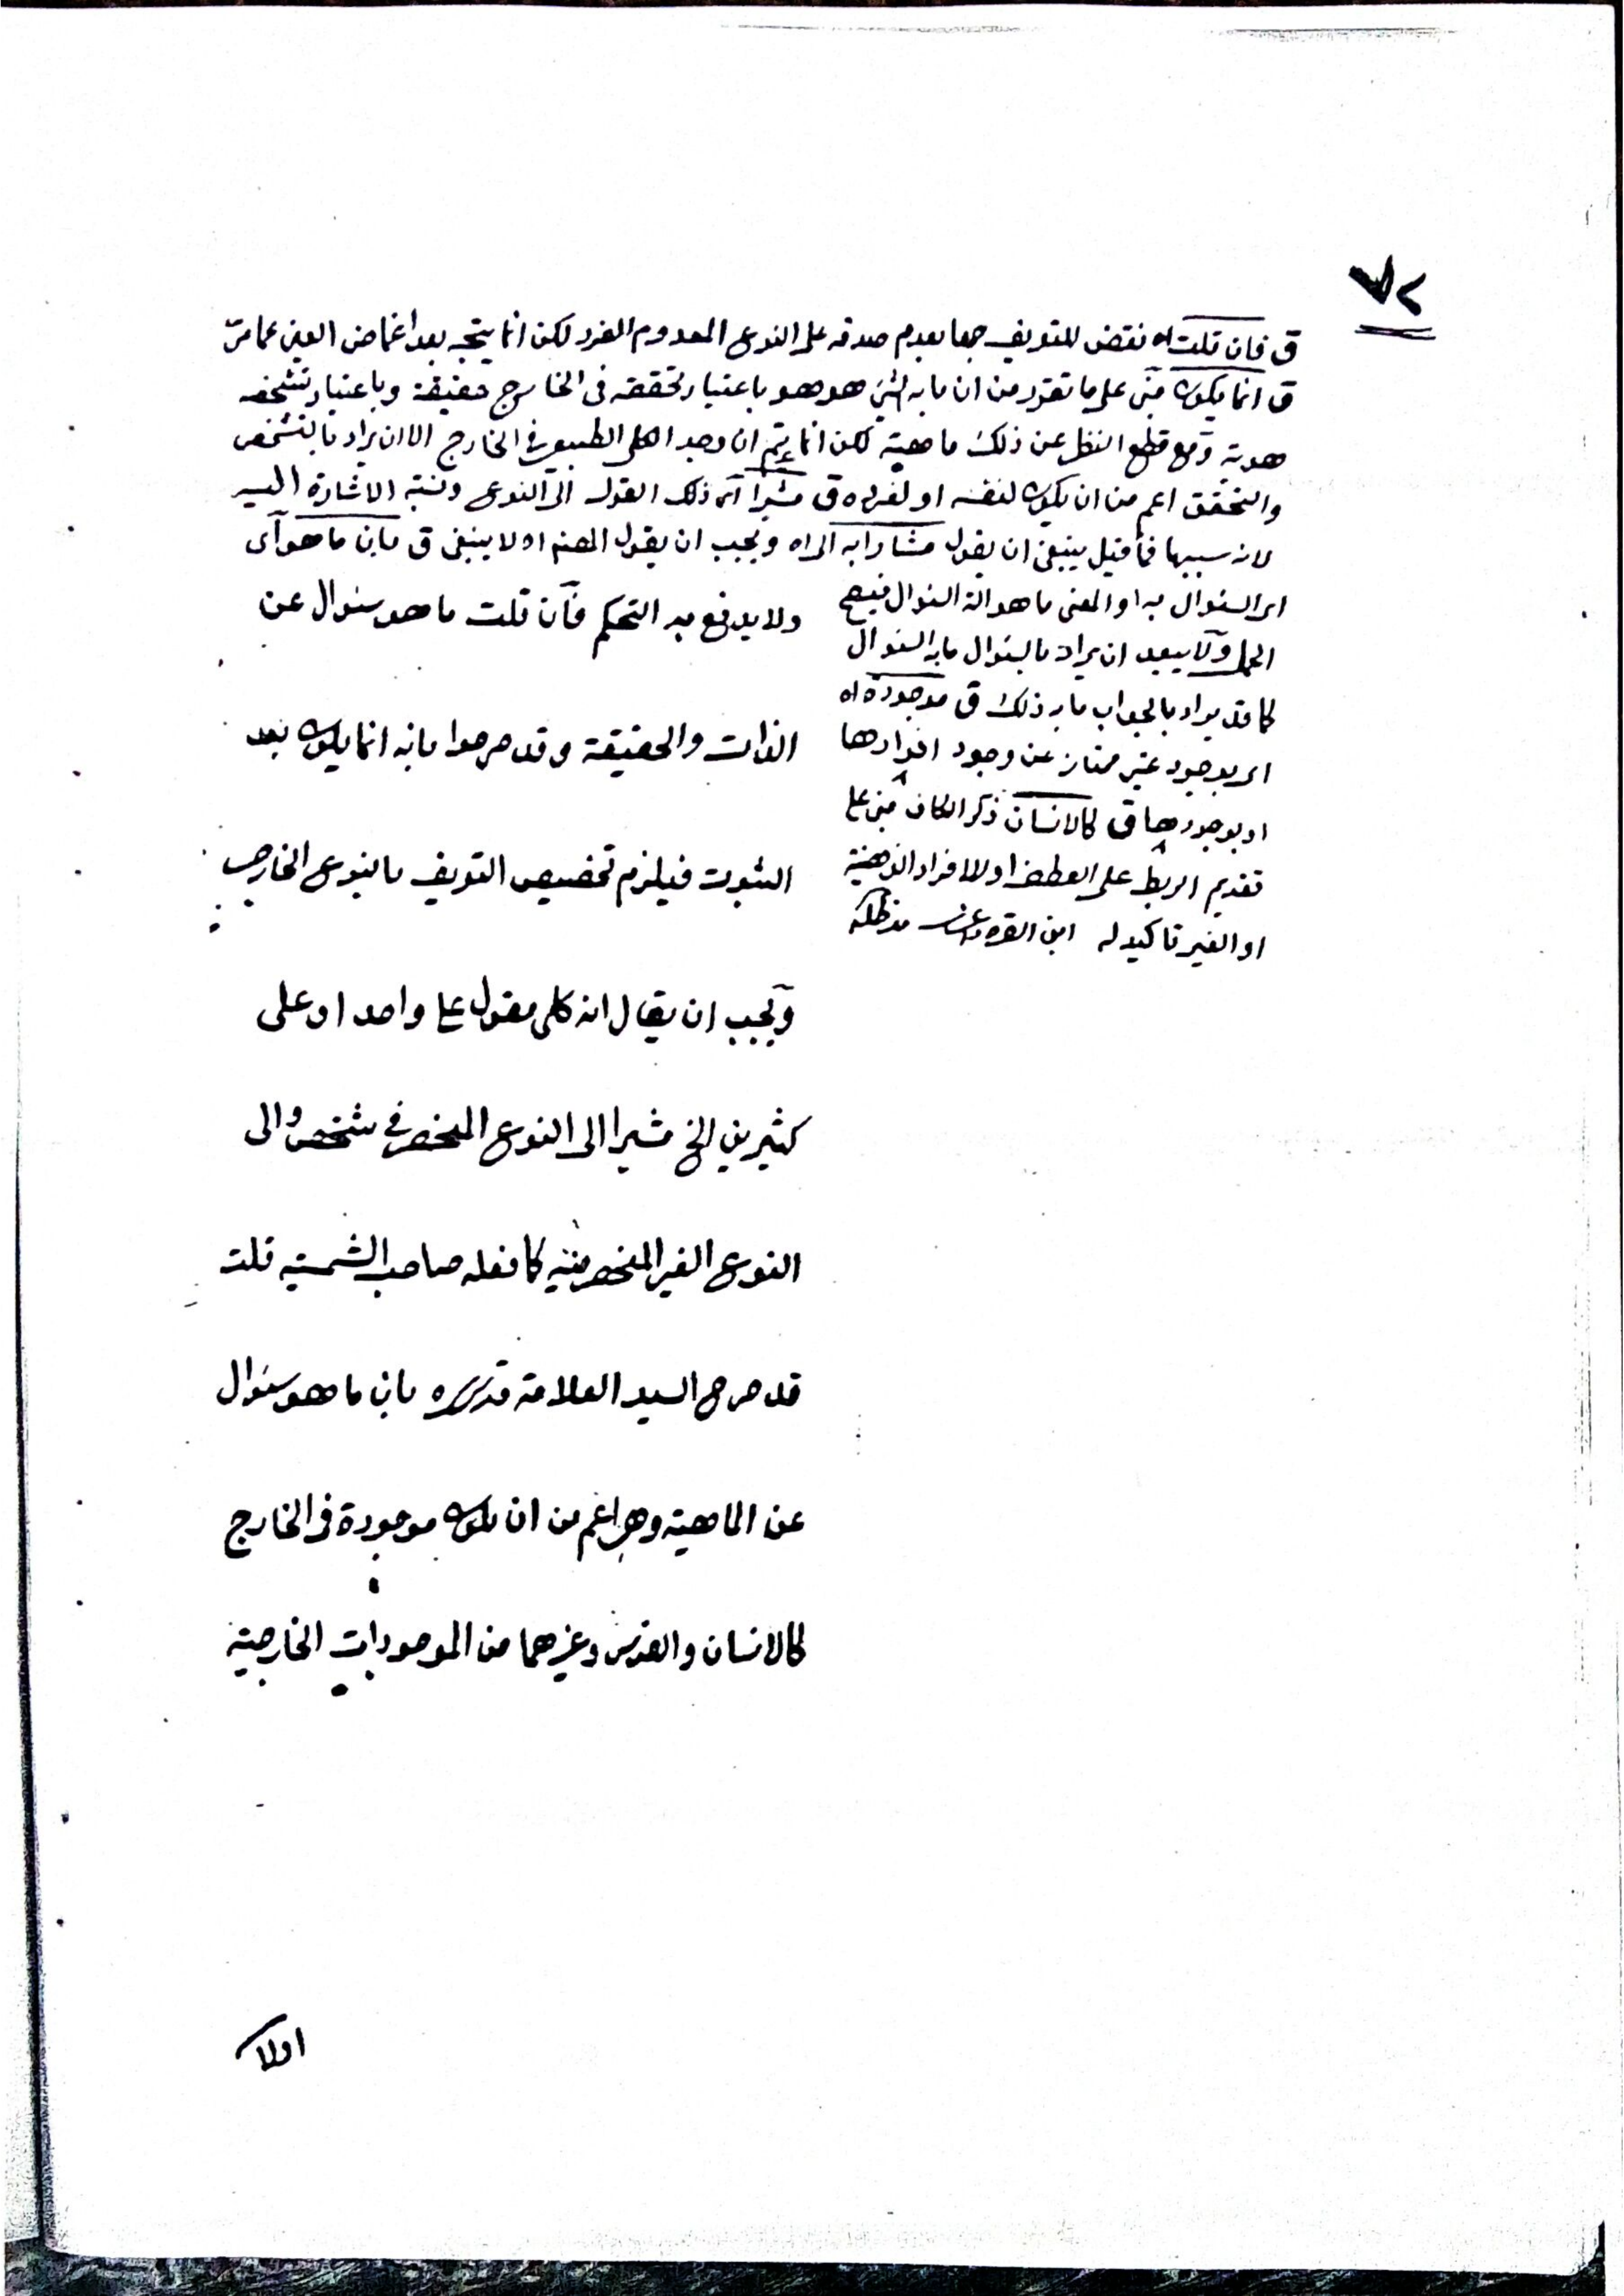 ٧٢
ق فان قلت اه نقض للتعريف جمعا بعدم صدقه على النوع المعدوم الفرد لكن انما يتجه بعد اغماض العين عما مرّ
ق انما يكون مبنى على ما تقرر من ان ما به الشئ هو هو باعتبار تحققه فى الخارج حقيقة وباعتبار تشخصه
هوية ومع قطع النظر عن ذلك ماهية لكن انما يتم ان وجد الكلى الطبيعى فى الخارج الا ان يراد بالتشخص
والتحقق اعم من ان يكون لنفسه او لفرده ق مشيرا اى ذلك القول الى النوع ونسبة الاشارة اليه
لانه سببها فما قيل ينبغى ان يقول مشارا به الى اه ويجب ان يقول المصنف اه لا ينبغى ق بان ما هو اى
اى السئوال به او المعنى ما هو الة السئوال فيصح
الحمل ولا يبعد ان يراد بالسئوال ما به السئوال
كما قد يراد بالجواب ما به ذلك ق موجودة اه
اى بوجود غير ممتاز عن وجود افرادها
او بوجودها ق كالانسان ذكر الكاف مبنى على
تقديم الربط على العطف او للافراد الذهنية
او الغير تاكيد له ابن القره داغى مد ظله
ولا يدفع به التحكم فان قلت ما هو سئوال عن
الذات والحقيقة وقد صرحوا بانه انما يكون بعد
الثبوت فيلزم تخصيص التعريف بالنوع الخارجى
ويجب ان يقال انه كلى مقول على واحد او على
كثيرين الخ مشيرا الى النوع المنحصر فى شخص والى
النوع الغير المنحصر فيه كما فعله صاحب الشمسية قلت
قد صرح السيد العلامة قدس سره بان ما هو سئوال
عن الماهية وهى اعم من ان يكون موجودة فى الخارج
كالانسان والفرس وغيرهما من الموجودات الخارجية
اولا